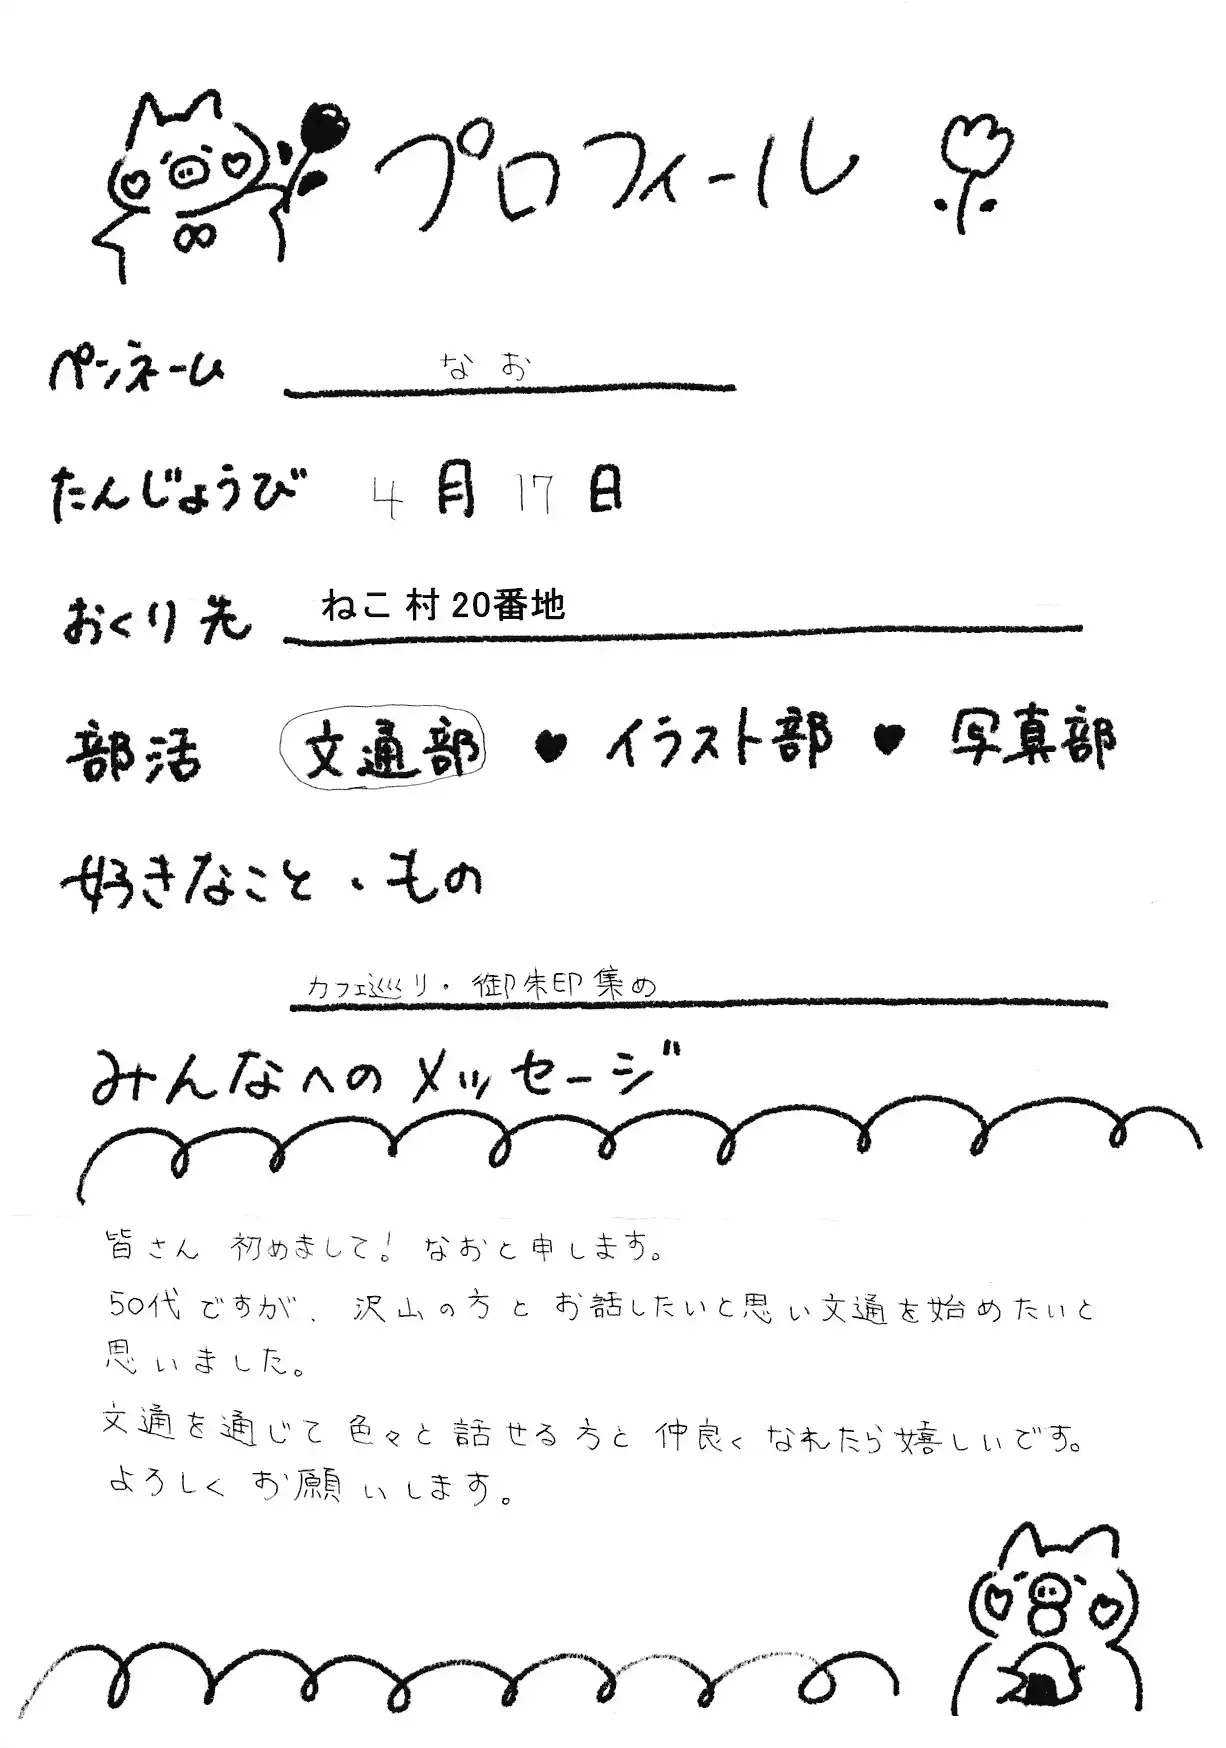 プロフィール
ペンネーム なお
たんじょうび 4月17日
おくり先 ねこ村20番地
部活 文通部 ♥ イラスト部 ♥ 写真部
好きなこと・もの
カフェ巡り・御朱印集め
みんなへのメッセージ
皆さん 初めまして! なおと申します。
50代ですが、沢山の方とお話したいと思い文通を始めたいと
思いました。
文通を通じて色々と話せる方と仲良くなれたら嬉しいです。
よろしくお願いします。